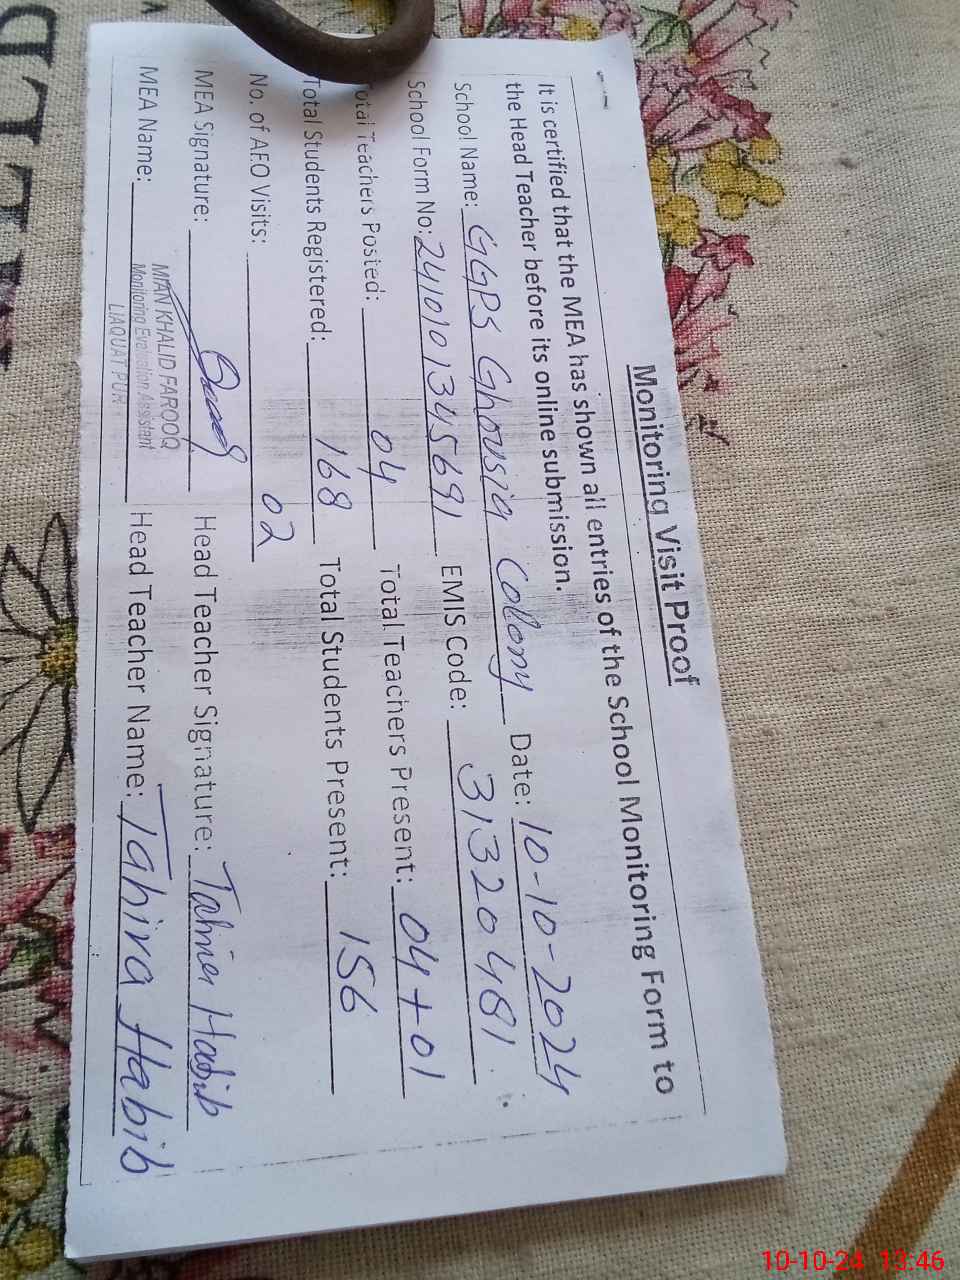 Monitoring Visit Proof
It is certified that the MEA has shown all entries of the School Monitoring Form to
the Head Teacher before its online submission.
School Name: GGPS Ghousia Collony Date: 10-10-2024
School Form No: 2410101345691 EMIS Code: 31320481
Total Teachers Posted: 04 Total Teachers Present: 04+01
Total Students Registered: 168 Total Students Present: 156
No. of AEO Visits: 02
MEA Signature: Head Teacher Signature: Tahira Habib
MEA Name: Head Teacher Name: Tahira Habib
MIAN KHALID FAROOQ
Monitoring Evaluation Assistant
LIAQUAT PUR
10-10-24 13:46